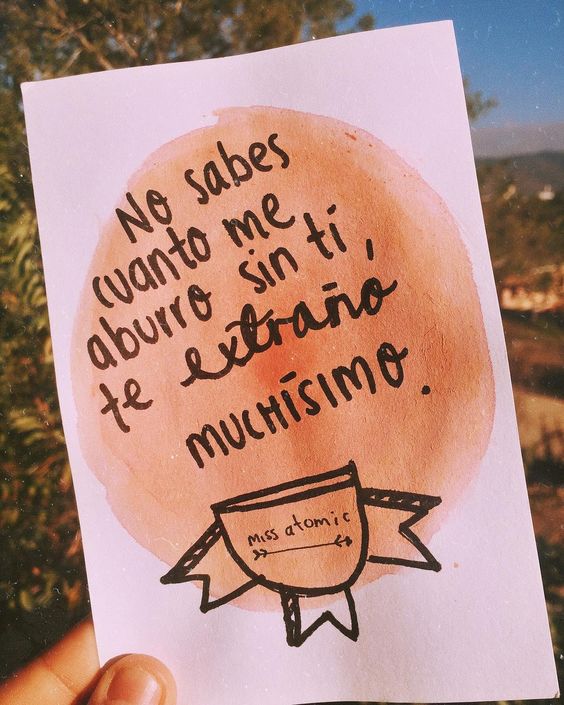 No sabes
cuanto me
aburro sin ti,
te extraño
MUCHÍSIMO.
miss atomic